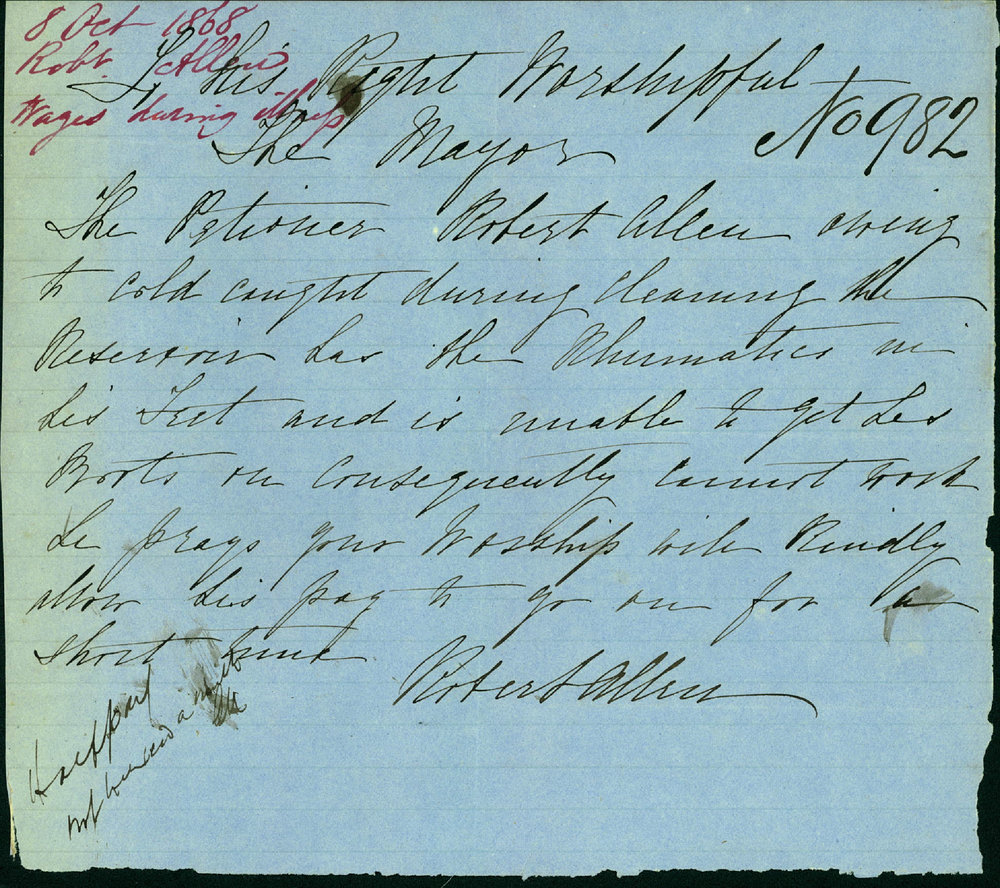 8 Oct 1868
Robt. Allen
Wages during illness
To His Right Worshipful
The Mayor
No 982
The Petioner Robert Allen owing
to cold caught during cleaning the
Reservoir has the Rhumatics in
his Feet and is unable to get his
Boots on consequently cannot work
he prays your Worship will Kindly
allow his pay to go on for a
short time
Robert Allen
Half pay
not exceed a